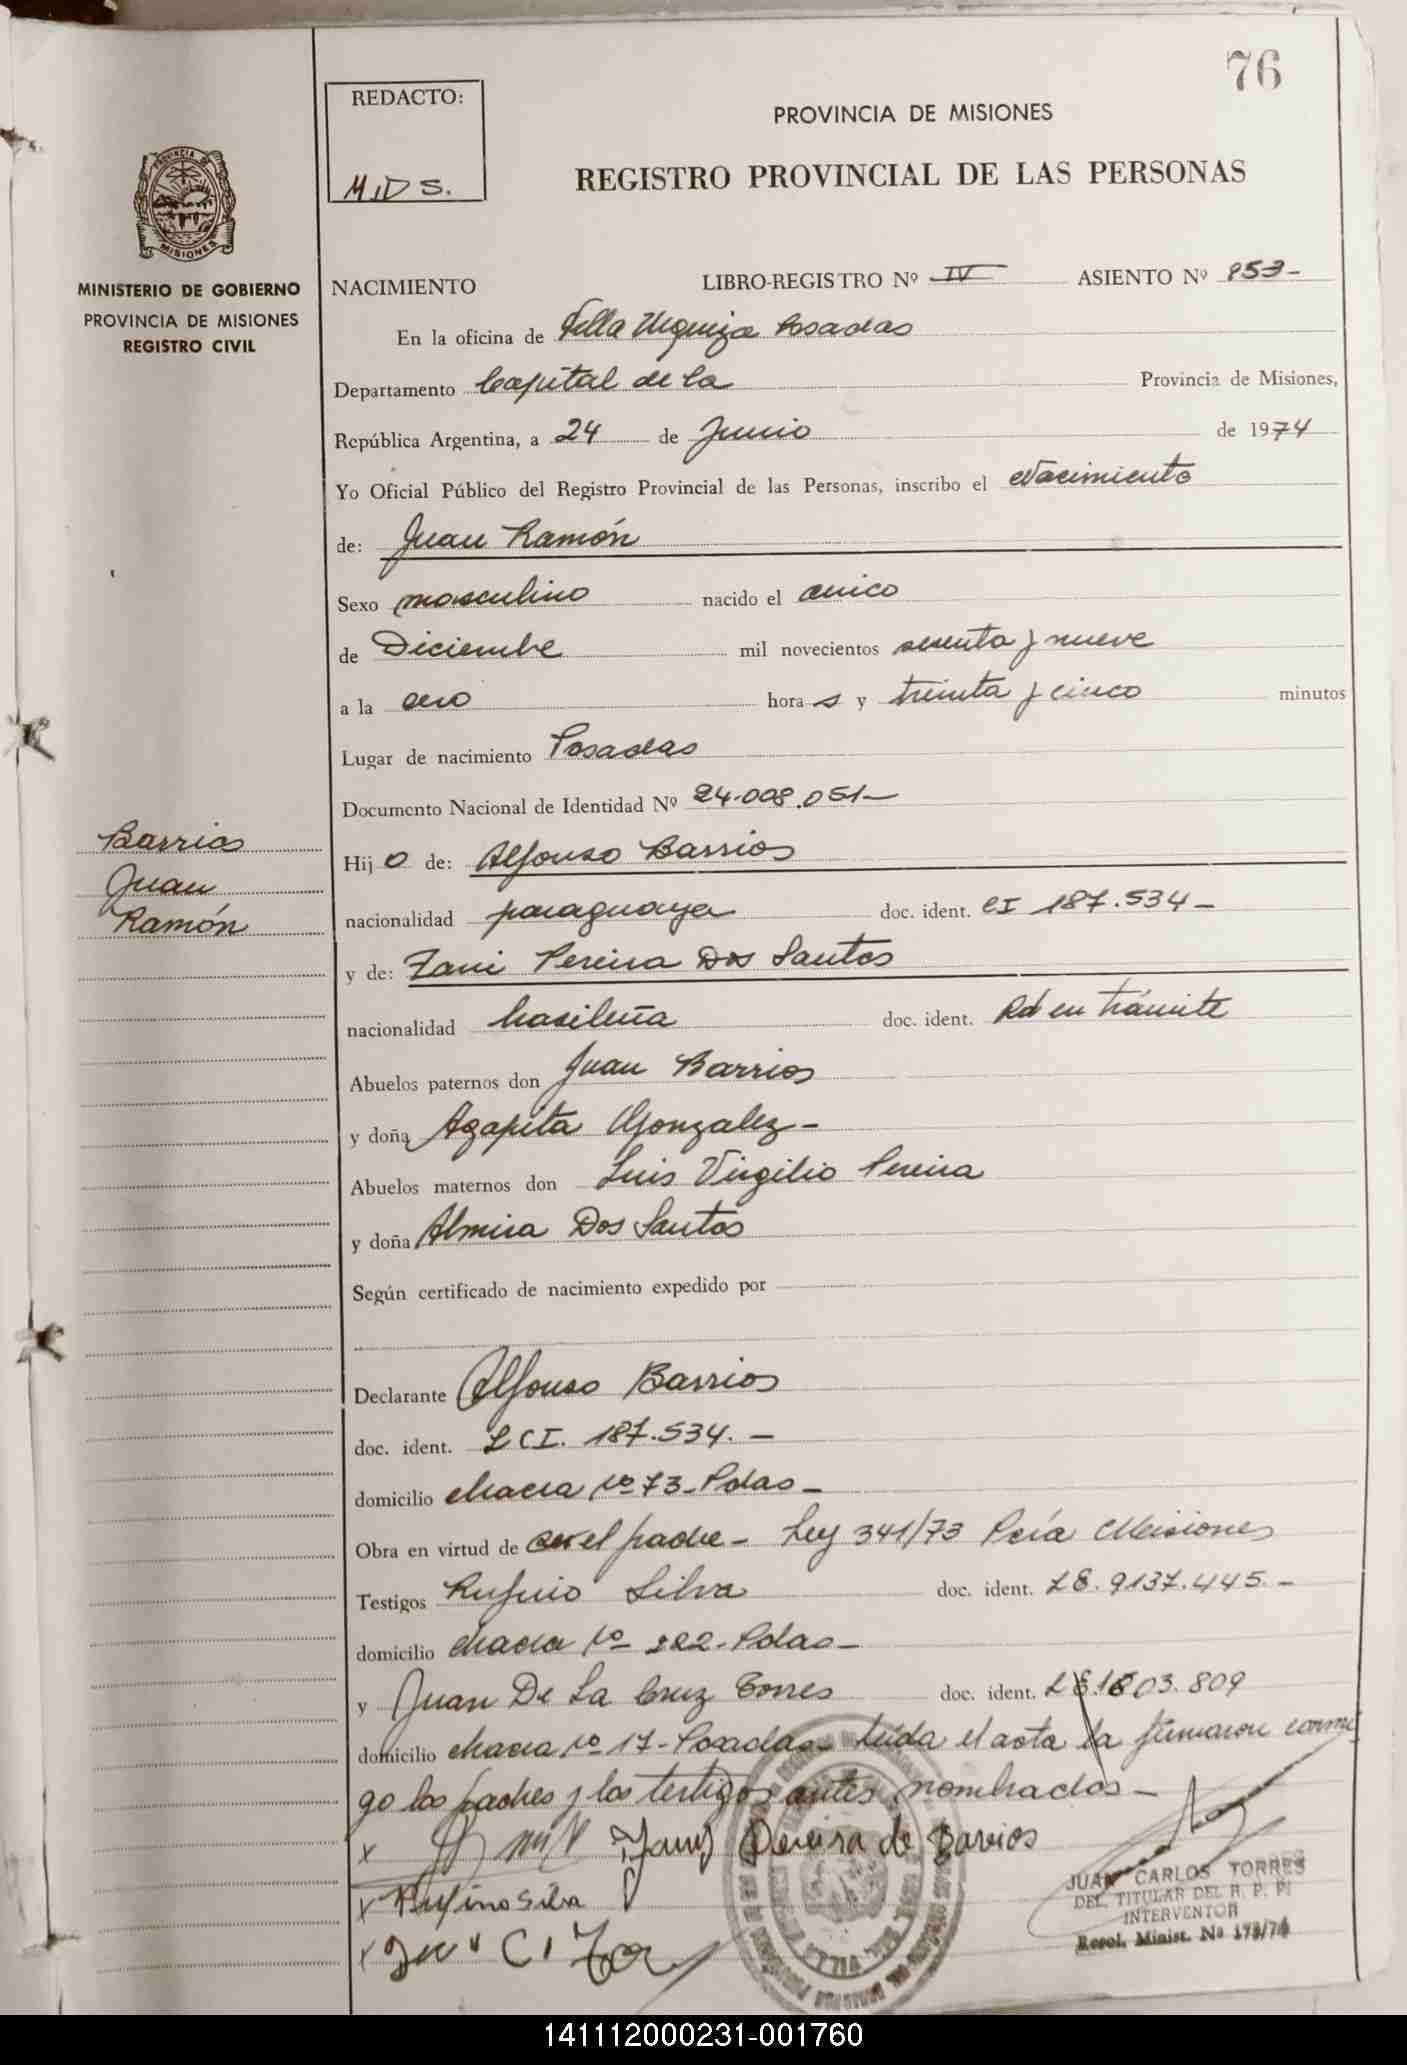 76
REDACTO:
M.D S.
PROVINCIA DE MISIONES
REGISTRO PROVINCIAL DE LAS PERSONAS
PROVINCIA DE
MISIONES
MINISTERIO DE GOBIERNO
PROVINCIA DE MISIONES
REGISTRO CIVIL
NACIMIENTO LIBRO-REGISTRO Nº IV ASIENTO Nº 853-
En la oficina de Villa Urquiza Posadas
Departamento Capital de la Provincia de Misiones,
República Argentina, a 24 de Junio de 1974
Yo Oficial Público del Registro Provincial de las Personas, inscribo el Nacimiento
de: Juan Ramón
Sexo masculino nacido el cinco
de Diciembre mil novecientos sesenta y nueve
a la cero hora s y treinta y cinco minutos
Lugar de nacimiento Posadas
Documento Nacional de Identidad Nº 24.008.051-
Barrios
Juan
Ramón
Hij o de: Alfonso Barrios
nacionalidad paraguaya doc. ident. CI 187.534-
y de: Zani Pereira Dos Santos
nacionalidad brasileña doc. ident. Rd en trámite
Abuelos paternos don Juan Barrios
y doña Agapita Gonzalez-
Abuelos maternos don Luis Virgilio Pereira
y doña Almira Dos Santos
Según certificado de nacimiento expedido por
Declarante Alfonso Barrios
doc. ident. CI. 187.534.-
domicilio chacra Nº 73-Pdas-
Obra en virtud de ser el padre- Ley 341/73 Pcia Misiones
Testigos Rufino Silva doc. ident. LE. 9137.445.-
domicilio chacra Nº 222-Pdas-
y Juan De La Cruz Torres doc. ident. LE.1803.809
domicilio chacra Nº 17-Posadas- Leída el acta la firmaron conmi
go los padres y los testigos antes nombrados-
x Jany Pereira de Barrios
x Rufino Silva
x
JUAN CARLOS TORRES
DEL TITULAR DEL R. P. P.
INTERVENTOR
Resol. Minist. Nº 173/74
141112000231-001760